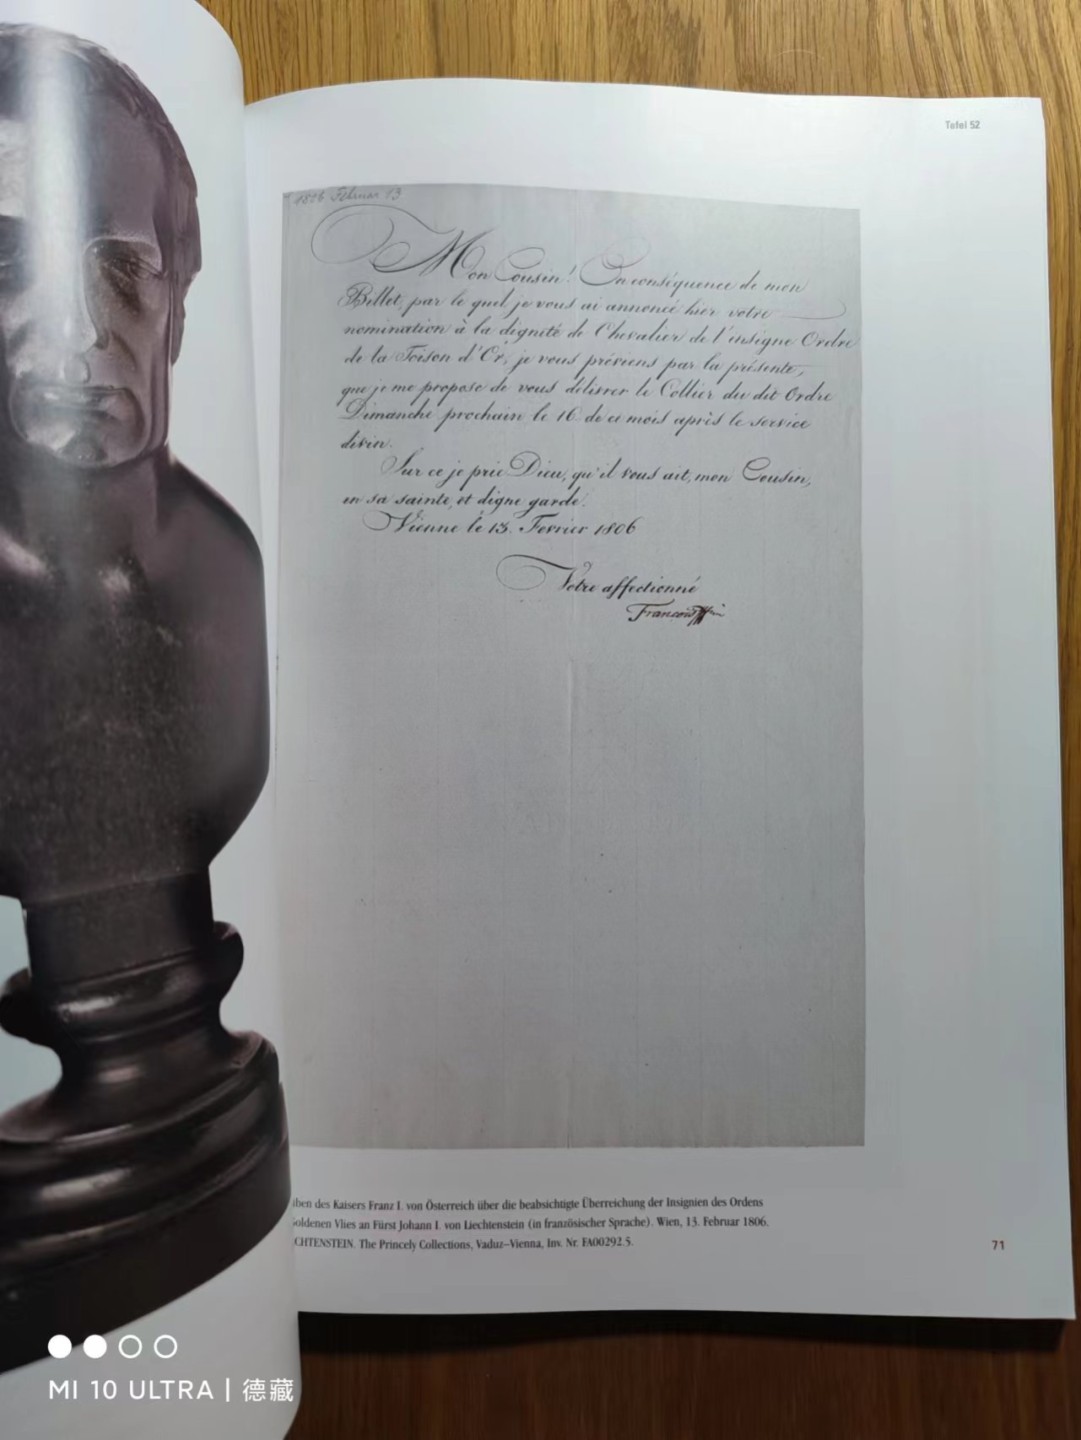 Tafel 52
1806 Februar 13
Mon Cousin! En conséquence de mon
Billet, par le quel je vous ai annoncé hier votre
nomination à la dignité de Chevalier de l'insigne Ordre
de la Toison d'Or, je vous préviens par la présente,
que je me propose de vous délivrer le Collier du dit Ordre
Dimanche prochain le 16 de ce mois après le service
divin.
Sur ce je prie Dieu, qu'il vous ait, mon Cousin,
en sa sainte, et digne garde.
Vienne le 13. Fevrier 1806
Votre affectionné
François
iben des Kaisers Franz I. von Österreich über die beabsichtigte Überreichung der Insignien des Ordens
oldenen Vlies an Fürst Johann I. von Liechtenstein (in französischer Sprache). Wien, 13. Februar 1806.
CHTENSTEIN. The Princely Collections, Vaduz–Vienna, Inv. Nr. FA00292.5.
71
MI 10 ULTRA | 德藏